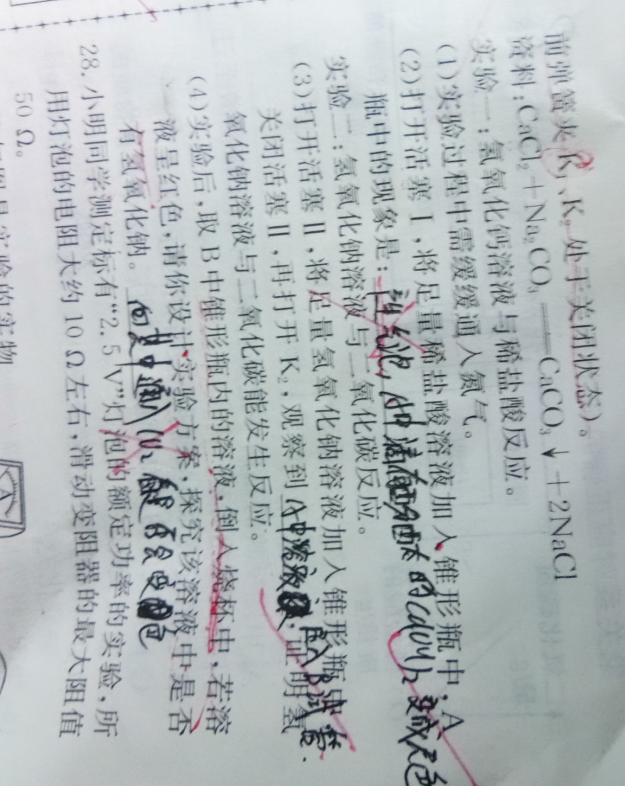 前弹簧夹 K₁、K₂ 处于关闭状态)。
资料:CaCl₂+Na₂CO₃══CaCO₃↓+2NaCl
实验一:氢氧化钙溶液与稀盐酸反应。
(1)实验过程中需缓缓通入氮气。
(2)打开活塞Ⅰ,将足量稀盐酸溶液加入锥形瓶中,A
瓶中的现象是:
变成无色
实验二:氢氧化钠溶液与二氧化碳反应。
(3)打开活塞Ⅱ,将足量氢氧化钠溶液加入锥形瓶
关闭活塞Ⅱ,再打开 K₂,观察到 A中溶液 证明氢
氧化钠溶液与二氧化碳能发生反应。
(4)实验后,取 B 中锥形瓶内的溶液,倒入烧杯中,若溶
液呈红色,请你设计实验方案,探究该溶液中是否
有氢氧化钠。
28. 小明同学测定标有“2.5 V”灯泡的额定功率的实验,所
用灯泡的电阻大约 10 Ω 左右,滑动变阻器的最大阻值
50 Ω。
实验的实物
A